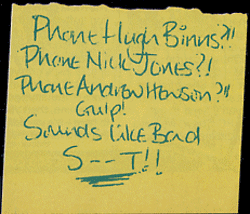 Phone Hugh Binns?!!
Phone Nick Jones?!
Phone Andrew Howson?!!
Gulp!
Sounds like Bad
S--T!!